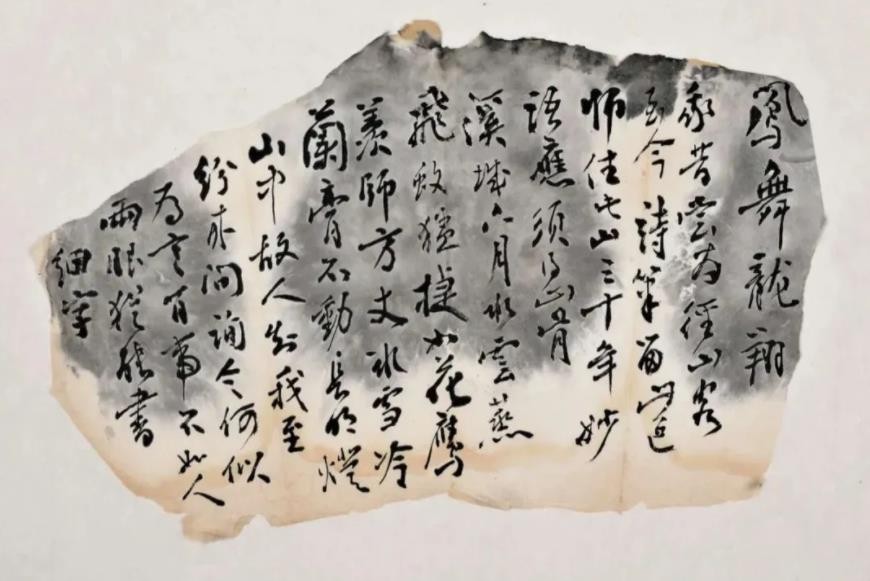 鳳舞龍翔
我昔嘗為徑山客
至今詩筆留山色
師住此山三十年妙
語應須得山骨
溪城六月水雲蒸
飛蚊猛捷如花鷹
羨師方丈冰雪冷
蘭膏不動長明燈
山中故人知我至
紛來問訊今何似
為言百事不如人
兩眼猶能書
細字